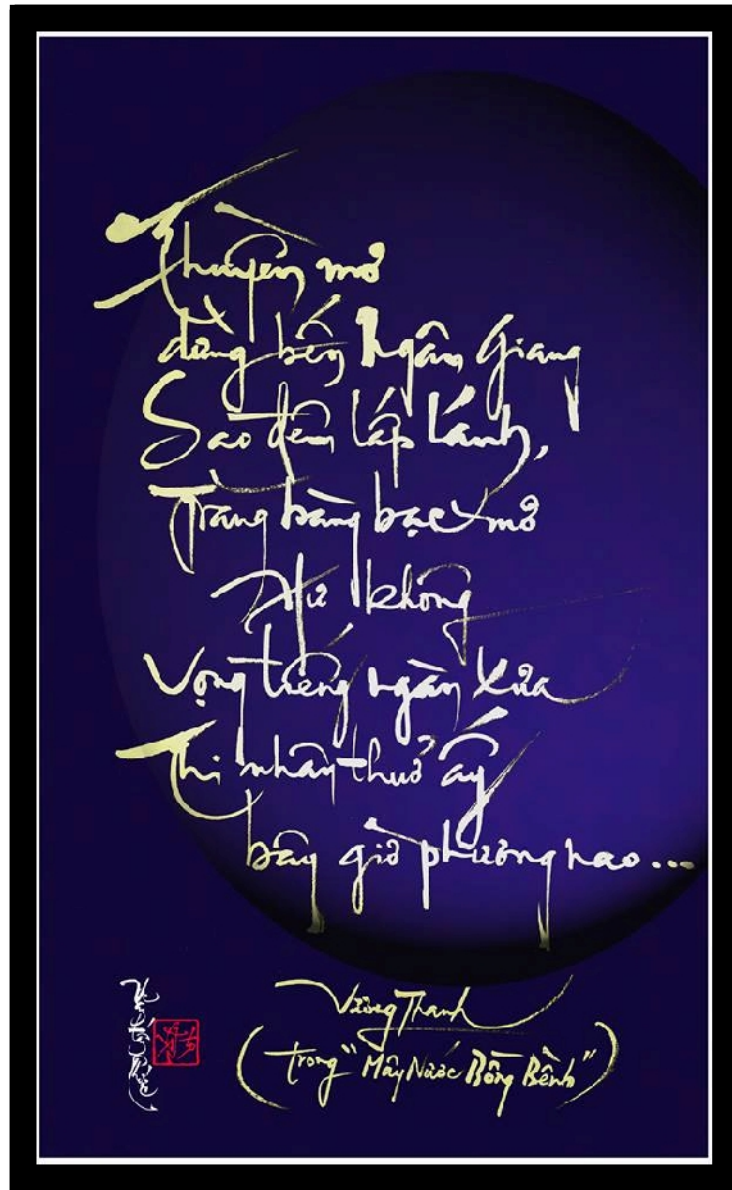 Thuyền mơ
dừng bến Ngân Giang
Sao đêm lấp lánh,
Trăng bàng bạc mơ
Hư không
Vọng tiếng ngàn xưa
Thi nhân thuở ấy
bây giờ phương nao...
Vương Thanh
(trong "Mây Nước Bồng Bềnh")